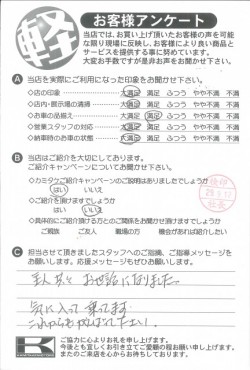 軽
お客様アンケート
当店では、お買い上げ頂いたお客様の声を可能
な限り現場に反映し、お客様により良い商品と
サービスを提供する事に努めています。
大変お手数ですが是非お声をお聞かせ下さい。
A 当店を実際にご利用になった印象をお聞かせ下さい。
◇店の印象 大満足 満足 ふつう やや不満 不満
◇店内・展示場の清掃 大満足 満足 ふつう やや不満 不満
◇お車の品揃え 大満足 満足 ふつう やや不満 不満
◇営業スタッフの対応 大満足 満足 ふつう やや不満 不満
大満足 満足 ふつう やや不満 不満
B 当店はご紹介を大切にしてあります。
ご紹介キャンペーンについてお聞かせ下さい。
◇カミタケご紹介キャンペーンのご説明はありましたでしょうか
はい いいえ
◇ご紹介を頂けますでしょうか
はい いいえ
◇具体的にご紹介頂ける方とのご関係をお聞かせ頂けますでしょうか
ご親族 ご友人 職場の方 機会があれば紹介したい
C 担当させて頂きましたスタッフへのご指摘、ご指導メッセージを
お願いします。応援メッセージもぜひお願いします。
主人共々 お世話になりました
気に入って 乗ってます
K
ご協力に心よりお礼を申し上げます。
今後とも宜しくお引き立てご愛顧の程お願い申し上げます。
またのご来店を心からお待ちしております。